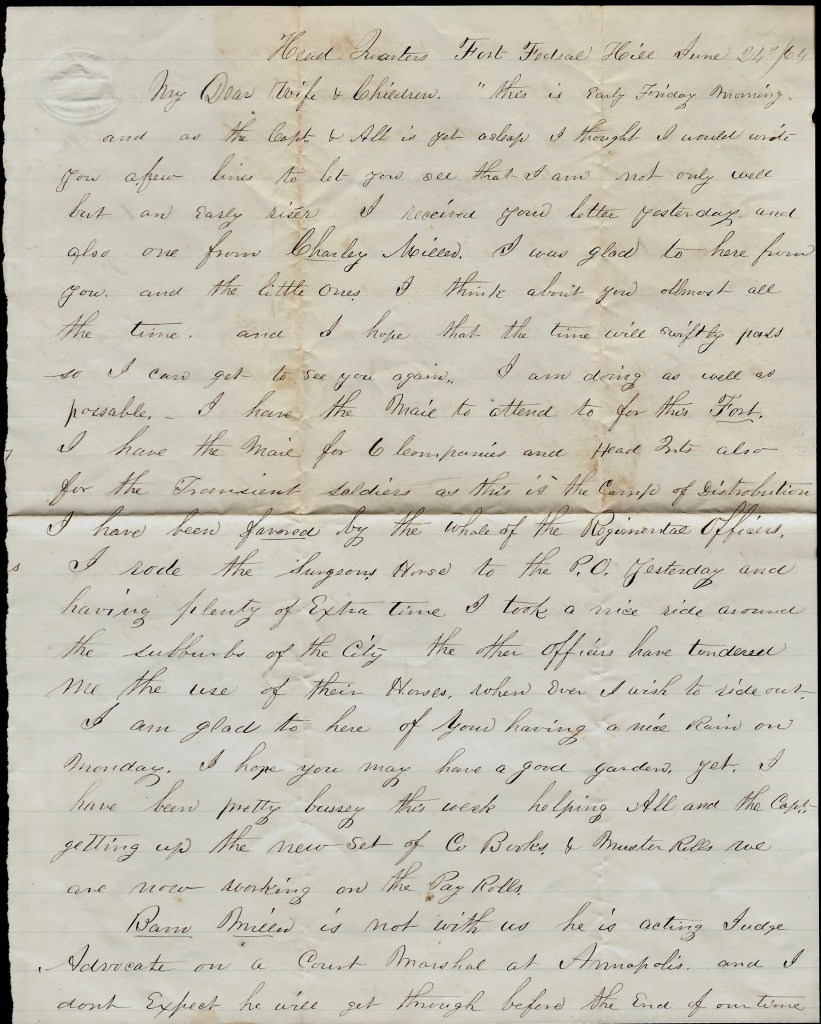 Head Quarters Fort Fedral Hill June 24th/64
My Dear Wife & Children. "this is Early Friday Morning.
and as the Capt. & All is yet asleap I thought I would write
you a few lines to let you see that I am not only well
but an Early riser I received your letter yesterday and
also one from Charley Miller. I was glad to here from
you. and the little ones I think about you allmost all
the time. and I hope that the time will swiftly pass
so I can get to see you again.. I am doing as well as
possable. - I have the Mail to attend to for this Fort.
I have the Mail for 6 Companies and Head Qrts also
for the Transient soldiers as this is the Camp of Distrobution
I have been favored by the whole of the Regimental Officers.
I rode the Surgeons Horse to the P.O. Yesterday and
having plenty of Extra time I took a nice ride around
the subburbs of the City the other Officers have tendered
me the use of their Horses. when Ever I wish to ride out.
I am glad to here of your having a nice Rain on
Monday. I hope you may have a good garden. yet. I
have been pretty bussey this week helping All and the Capt..
getting up the new set of Co Books. & Muster Rolls we
are now working on the Pay Rolls.
Bam Miller is not with us he is acting Judge
Advocate on a Court Marshal at Annapolis. and I
dont Expect he will get through before the End of our time